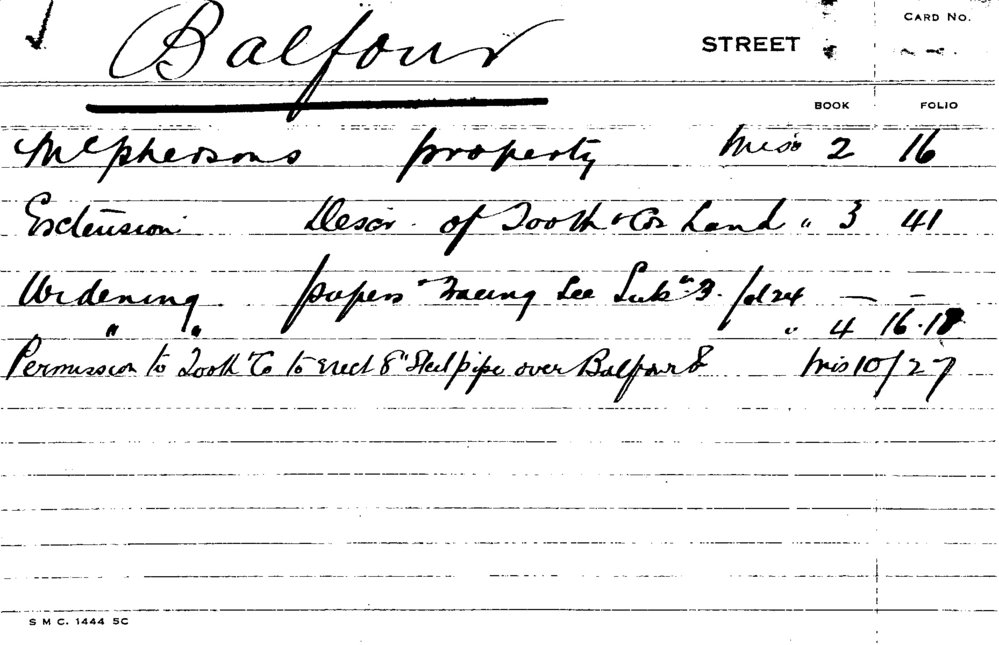 CARD No.
Balfour STREET
BOOK FOLIO
McPhersons property Mis 2 16
Extension Descr. of Tooth & Cos Land " 3 41
Widening papers & Tracing See Sub 3. fol 24 — —
" " " 4 16.18
Permission to Tooth & Co to Erect 8" Steel pipe over Balfour St Mis 10/27
S M C. 1444 5C